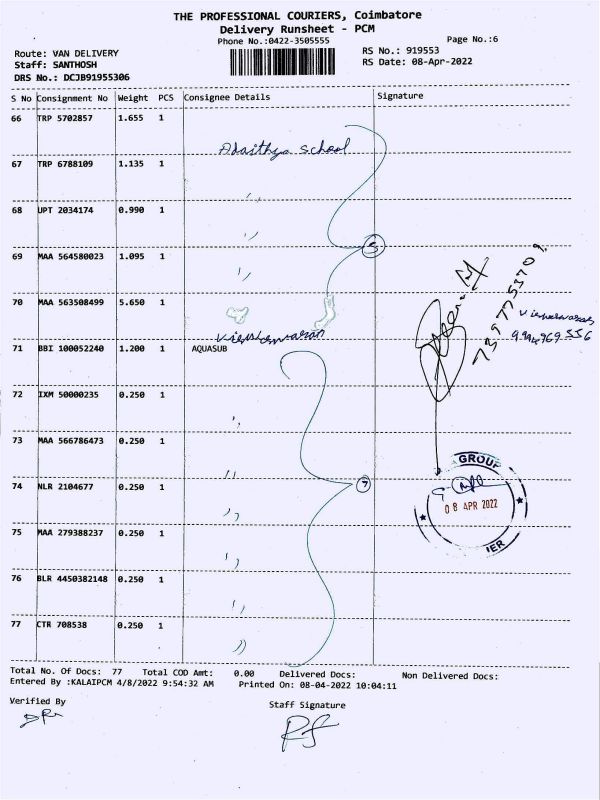 THE PROFESSIONAL COURIERS, Coimbatore
Delivery Runsheet - PCM
Phone No.:0422-3505555
Page No.:6
Route: VAN DELIVERY
RS No.: 919553
Staff: SANTHOSH
RS Date: 08-Apr-2022
DRS No.: DCJB91955306
S No Consignment No Weight PCS Consignee Details Signature
66 TRP 5702857 1.655 1
Adaithya school
67 TRP 6788109 1.135 1
68 UPT 2034174 0.990 1
5
69 MAA 564580023 1.095 1
70 MAA 563508499 5.650 1
71 BBI 100052240 1.200 1 AQUASUB
72 IXM 50000235 0.250 1
73 MAA 566786473 0.250 1
GROUP
74 NLR 2104677 0.250 1
7
08 APR 2022
75 MAA 279388237 0.250 1
IER
76 BLR 4450382148 0.250 1
77 CTR 708538 0.250 1
Total No. Of Docs: 77 Total COD Amt: 0.00 Delivered Docs: Non Delivered Docs:
Entered By :KALAIPCM 4/8/2022 9:54:32 AM Printed On: 08-04-2022 10:04:11
Verified By
Staff Signature